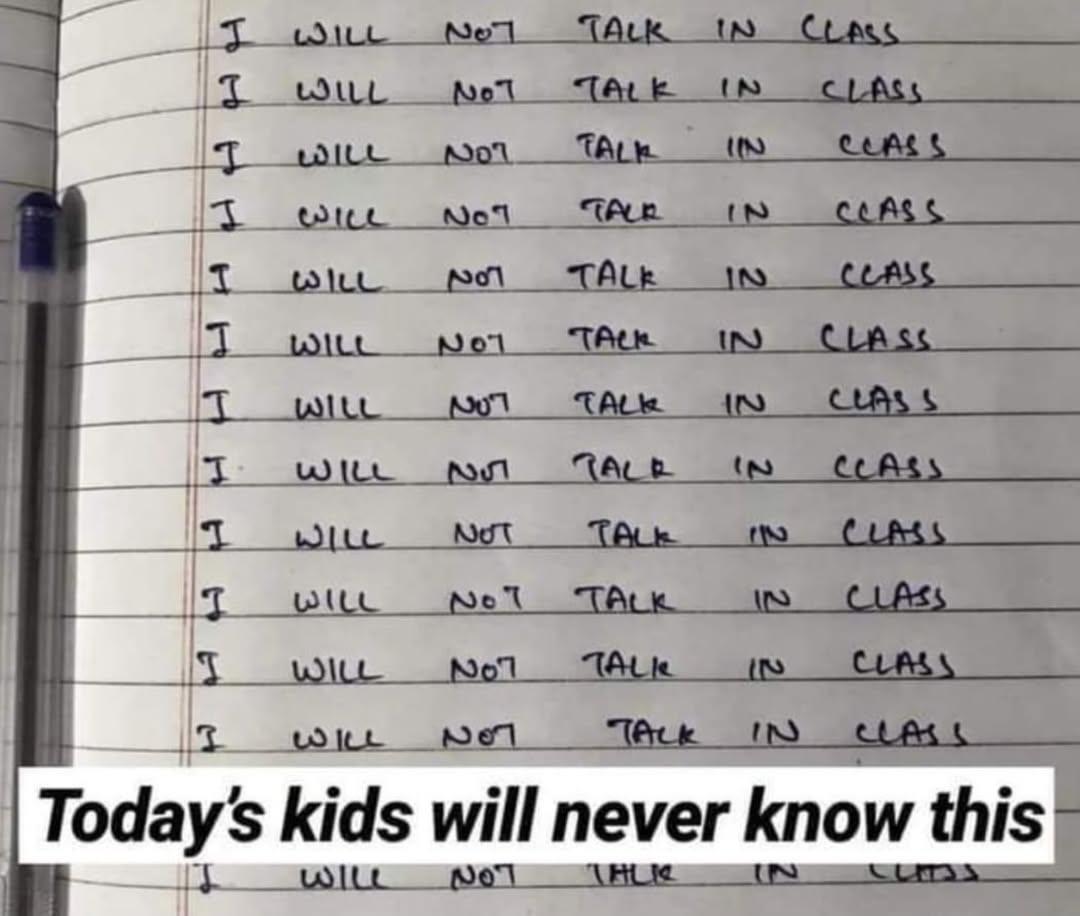 I WILL NOT TALK IN CLASS
I WILL NOT TALK IN CLASS
I WILL NOT TALK IN CLASS
I WILL NOT TALK IN CLASS
I WILL NOT TALK IN CLASS
I WILL NOT TALK IN CLASS
I WILL NOT TALK IN CLASS
I WILL NOT TALK IN CLASS
I WILL NOT TALK IN CLASS
I WILL NOT TALK IN CLASS
I WILL NOT TALK IN CLASS
I WILL NOT TALK IN CLASS
Today's kids will never know this
I WILL NOT TALK IN CLASS